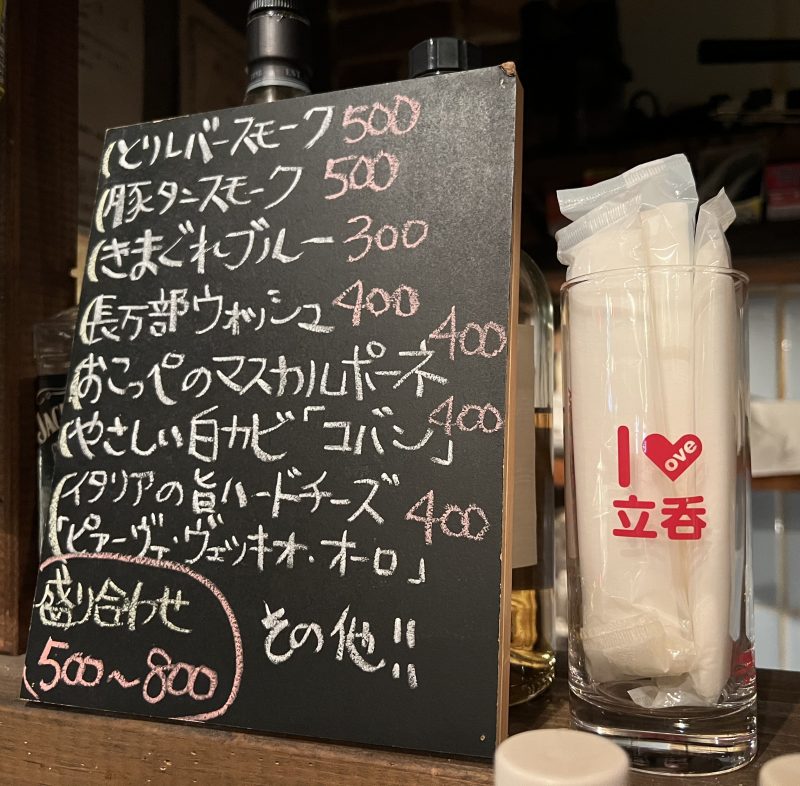 とりレバースモーク 500
豚タンスモーク 500
きまぐれブルー 300
長万部ウォッシュ 400
おこっぺのマスカルポーネ 400
やさしい白カビ「コバン」 400
イタリアの旨ハードチーズ
「ピアーヴェ・ヴェッキオ・オーロ」 400
盛り合わせ
500~800
その他!!
I ove
立呑
JAC